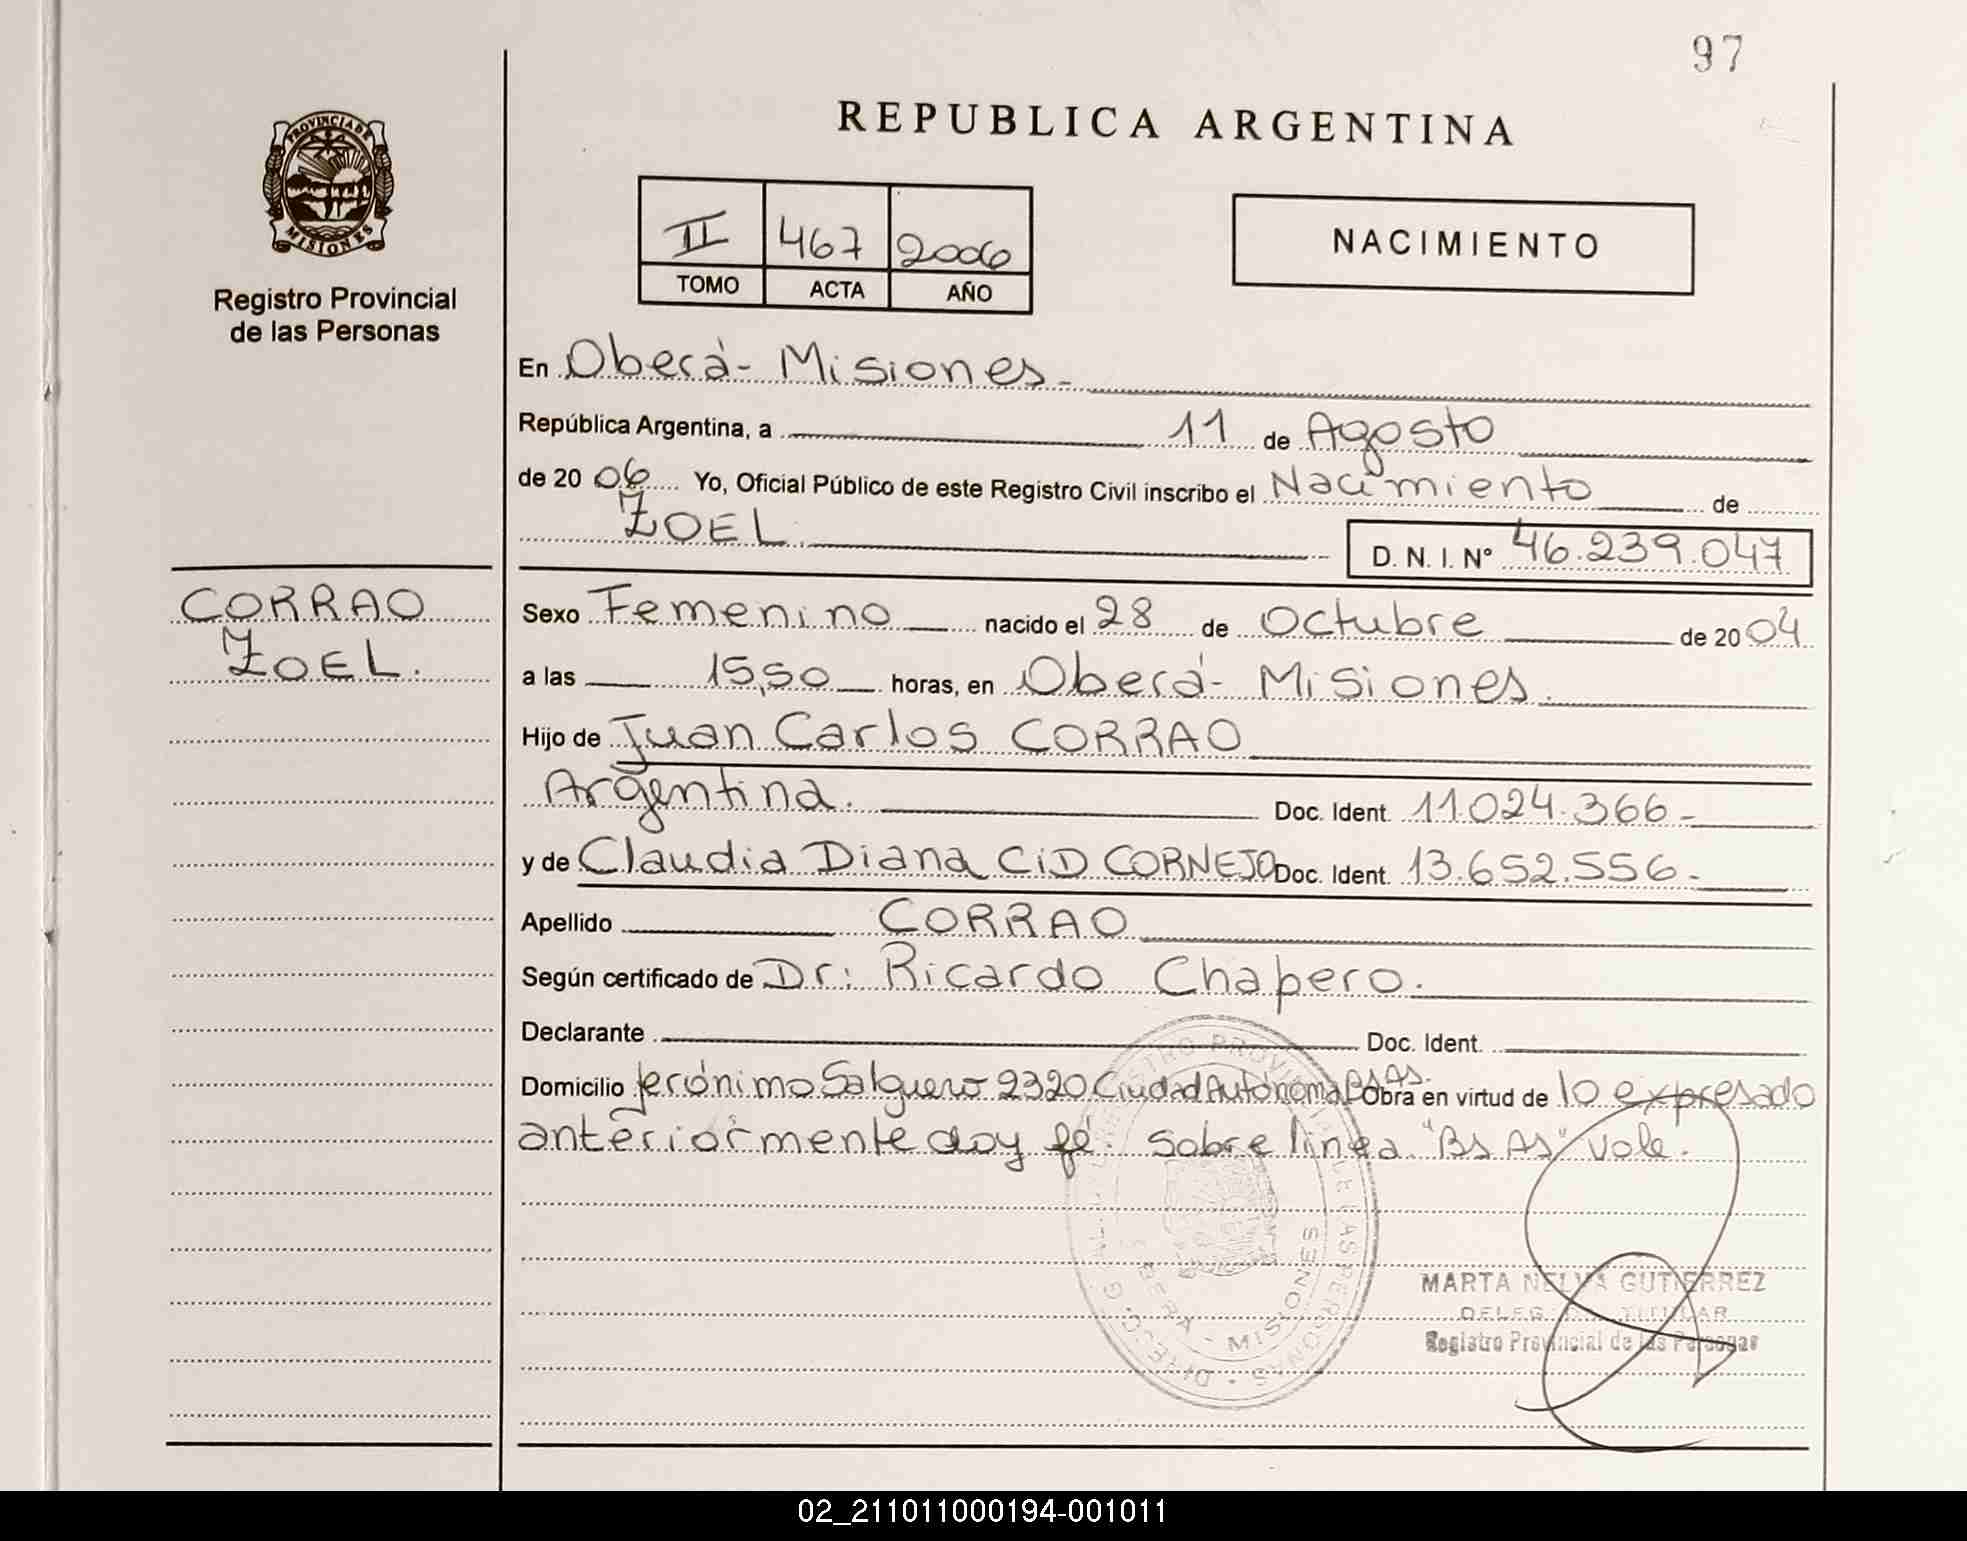 97
REPUBLICA ARGENTINA
PROVINCIA DE
MISIONES
II 467 2006
TOMO ACTA AÑO
NACIMIENTO
Registro Provincial
de las Personas
En Oberá - Misiones.
República Argentina, a 11 de Agosto
de 20 06 Yo, Oficial Público de este Registro Civil inscribo el Nacimiento de
ZOEL D. N. I. N° 46.239.047
CORRAO
ZOEL.
Sexo Femenino nacido el 28 de Octubre de 20 04
a las 15,50 horas, en Oberá - Misiones.
Hijo de Juan Carlos CORRAO
Argentina. Doc. Ident. 11.024.366.-
y de Claudia Diana CiD CORNEJO Doc. Ident. 13.652.556.-
Apellido CORRAO
Según certificado de Dr: Ricardo Chapero.
Declarante Doc. Ident.
Domicilio Jerónimo Salguero 2320 Ciudad Autónoma Bs As. Obra en virtud de lo expresado
anteriormente doy fé. Sobre línea "Bs As" Vale.
MARTA NELVA GUTIERREZ
TITULAR
Registro Provincial de las Personas
MISIONES
02_211011000194-001011